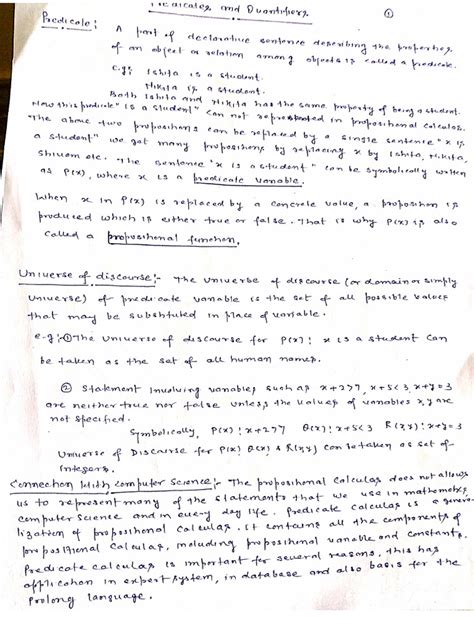 Predicates and Quantifiers
①
Predicate:
A part of declarative sentence describing the properties
of an object or relation among objects is called a predicate.
e.g: Ishita is a student.
Nikita is a student.
Both Ishita and Nikita has the same property of being a student.
Now this predicate "is a student" can not represented in propositional calculas.
The above two propositions can be replaced by a single sentence "x is
a student" we got many propositions by replacing x by Ishita, Nikita,
Shivom etc. The sentence "x is a student" can be symbolically written
as P(x), where x is a predicate variable.
When x in P(x) is replaced by a concrete value, a proposition is
produced which is either true or false. That is why P(x) is also
called a propositional function.
Universe of discourse:- The universe of discourse (or domain or simply
universe) of predicate variable is the set of all possible values
that may be substituted in place of variable.
e-g:-① The Universe of discourse for P(x): x is a student can
be taken as the set of all human names.
② Statement involving variables such as x+2>7, x+5<3, x+y=3
are neither true nor false unless the values of variables x,y are
not specified.
Symbolically, P(x): x+2>7 Q(x): x+5<3 R(x,y): x+y=3
Universe of Discourse for P(x) Q(x) & R(x,y) can be taken as set of-
Integers.
Connection With Computer Science:- The propositional Calculas does not allows
us to represent many of the statements that we use in mathematics,
computer science and in every day life. Predicate calculas is a genera-
lization of propositional calculas. It contains all the components of
propositional Calculas, including propositional variable and constants.
Predicate calculas is important for several reasons, this has
application in expert system, in database and also basis for the
Prolong language.